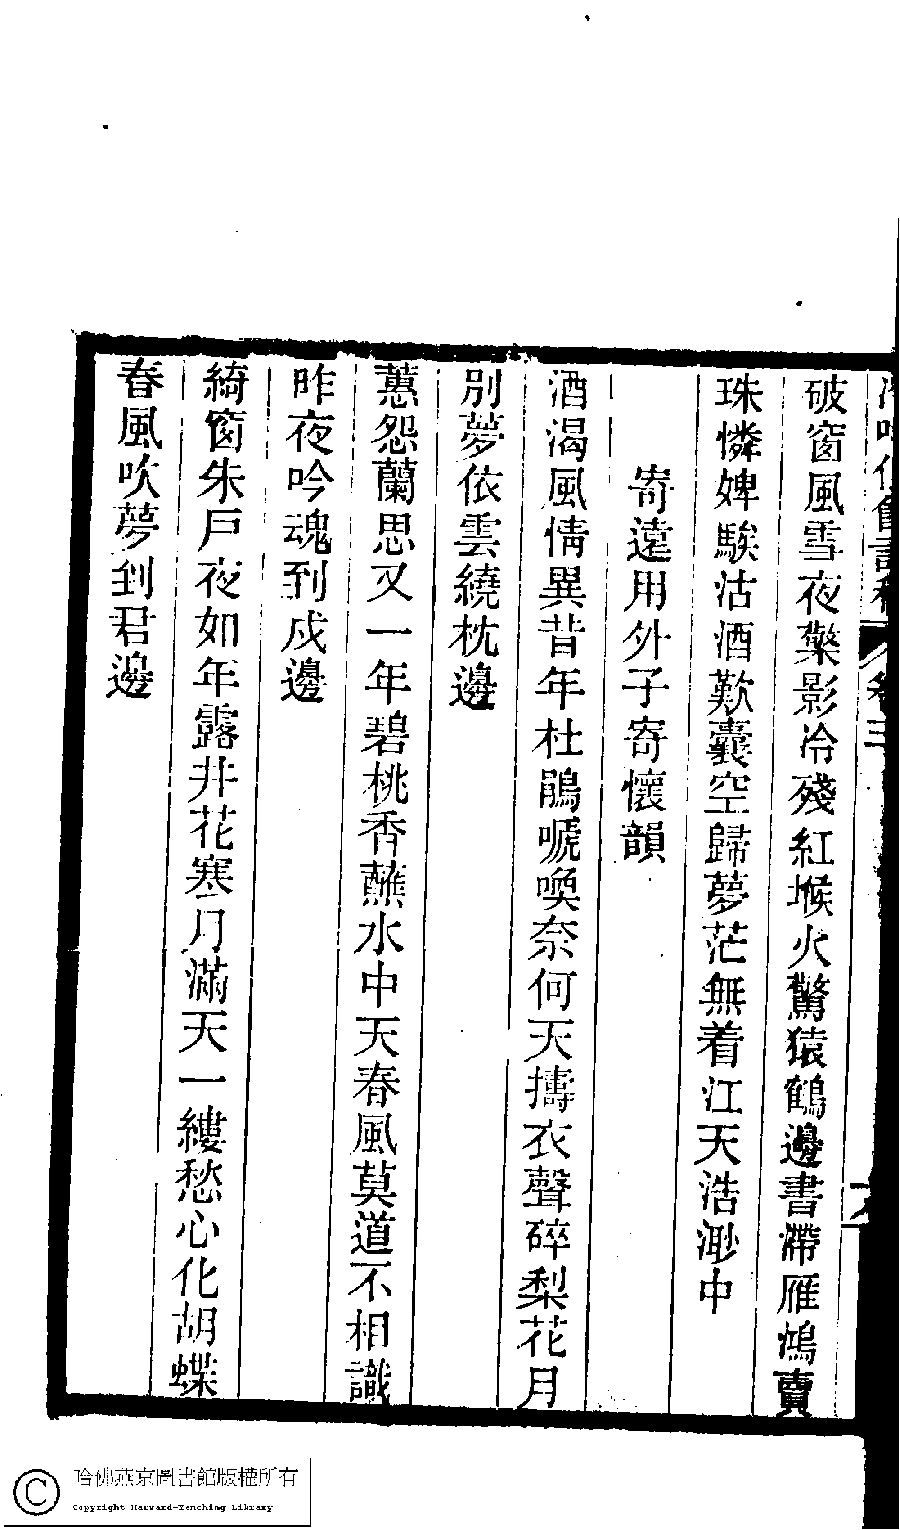 破窗風雪夜檠影冷殘紅堠火驚猿鶴邊書滯雁鴻賣
珠憐婢騃沽酒歎囊空歸夢茫無着江天浩渺中
寄遠用外子寄懷韻
酒渴風情異昔年杜鵑嗁喚奈何天擣衣聲碎梨花月
別夢依雲繞枕邊
蕙怨蘭思又一年碧桃香蘸水中天春風莫道不相識
昨夜吟魂到戍邊
綺窗朱戶夜如年露井花寒月滿天一縷愁心化胡蝶
春風吹夢到君邊
哈佛燕京圖書館版權所有
Copyright Harvard-Yenching Library